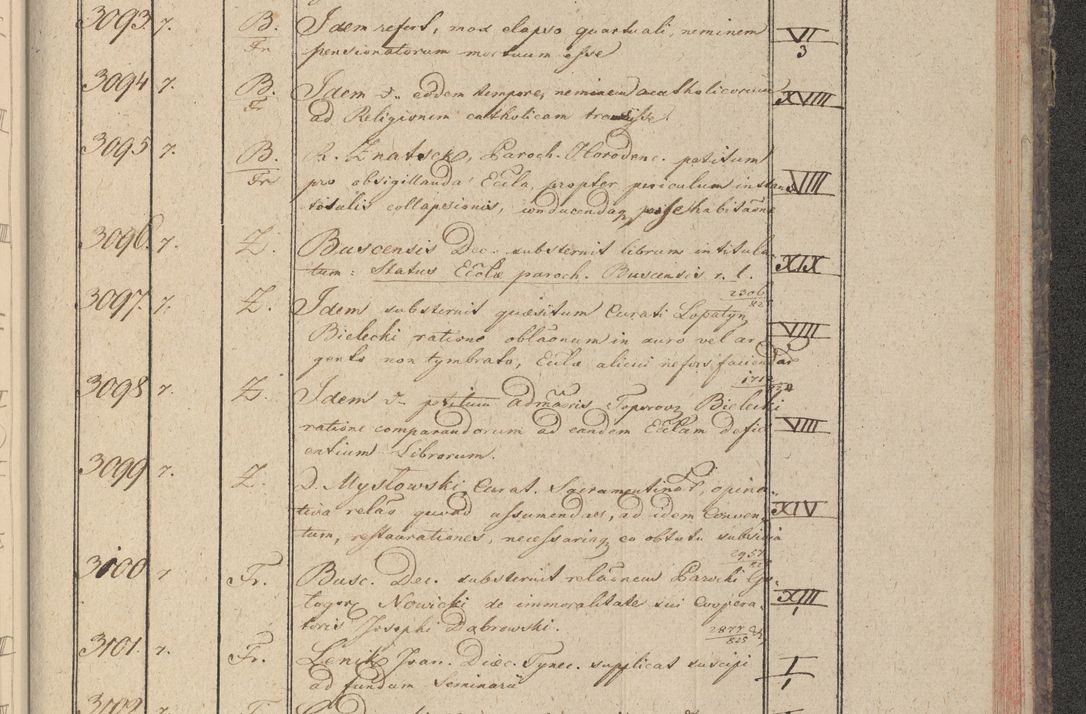 3093. 7. B. Idem refert, mox elapso quartuali, neminem VI
Fr pensionatorum mortuum esse 3
3094 7. B. Idem r. eodem tempore, neminem acatholicorum XVIII
Fr ad Religionem catholicam transisse.
3095 7. B. R. Znatsck, Paroch. Horodenc. petitum
Fr pro obsigillanda Eccla, propter periculum instan VIII
totalis collapsionis,
3096. 7. Z. Buscensis Dec. substernit librum intitula
tum: Status Ecclæ paroch. Buscensis r. l. XIX
2306
825
3097. 7. Z. Idem substernit quæsitum Curati Lopatyn
Bielecki ratione oblaonum in auro vel ar VIII
gento non tymbrato, Ecclæ alicui refors faciendar
3098 7. Z. Idem r. petitum Admoris Toporovz Bielecki
ratione comparandorum ad eandem Ecclam defic VIII
entium Librorum.
3099 7. Z. D. Mysłowski, Curat. Sacramentinar, opina-
tiva relao quoad assumendas, ad idem Conven XIV
tum, restaurationes, necessarinq eo obtutu subsidia
2957
3100 7 Fr. Busc. Dec. substernit relaoneus Parochi Go
logor Nowicki de immoralitate sui Coopera- XIII
toris Josephi Dąbrowski. 1
2877
825
3101. 7. Fr. Lenik Joan. Diæc. Tynec. supplicat suscipi I
ad fundum Seminarii 1
3102 7. Fr.